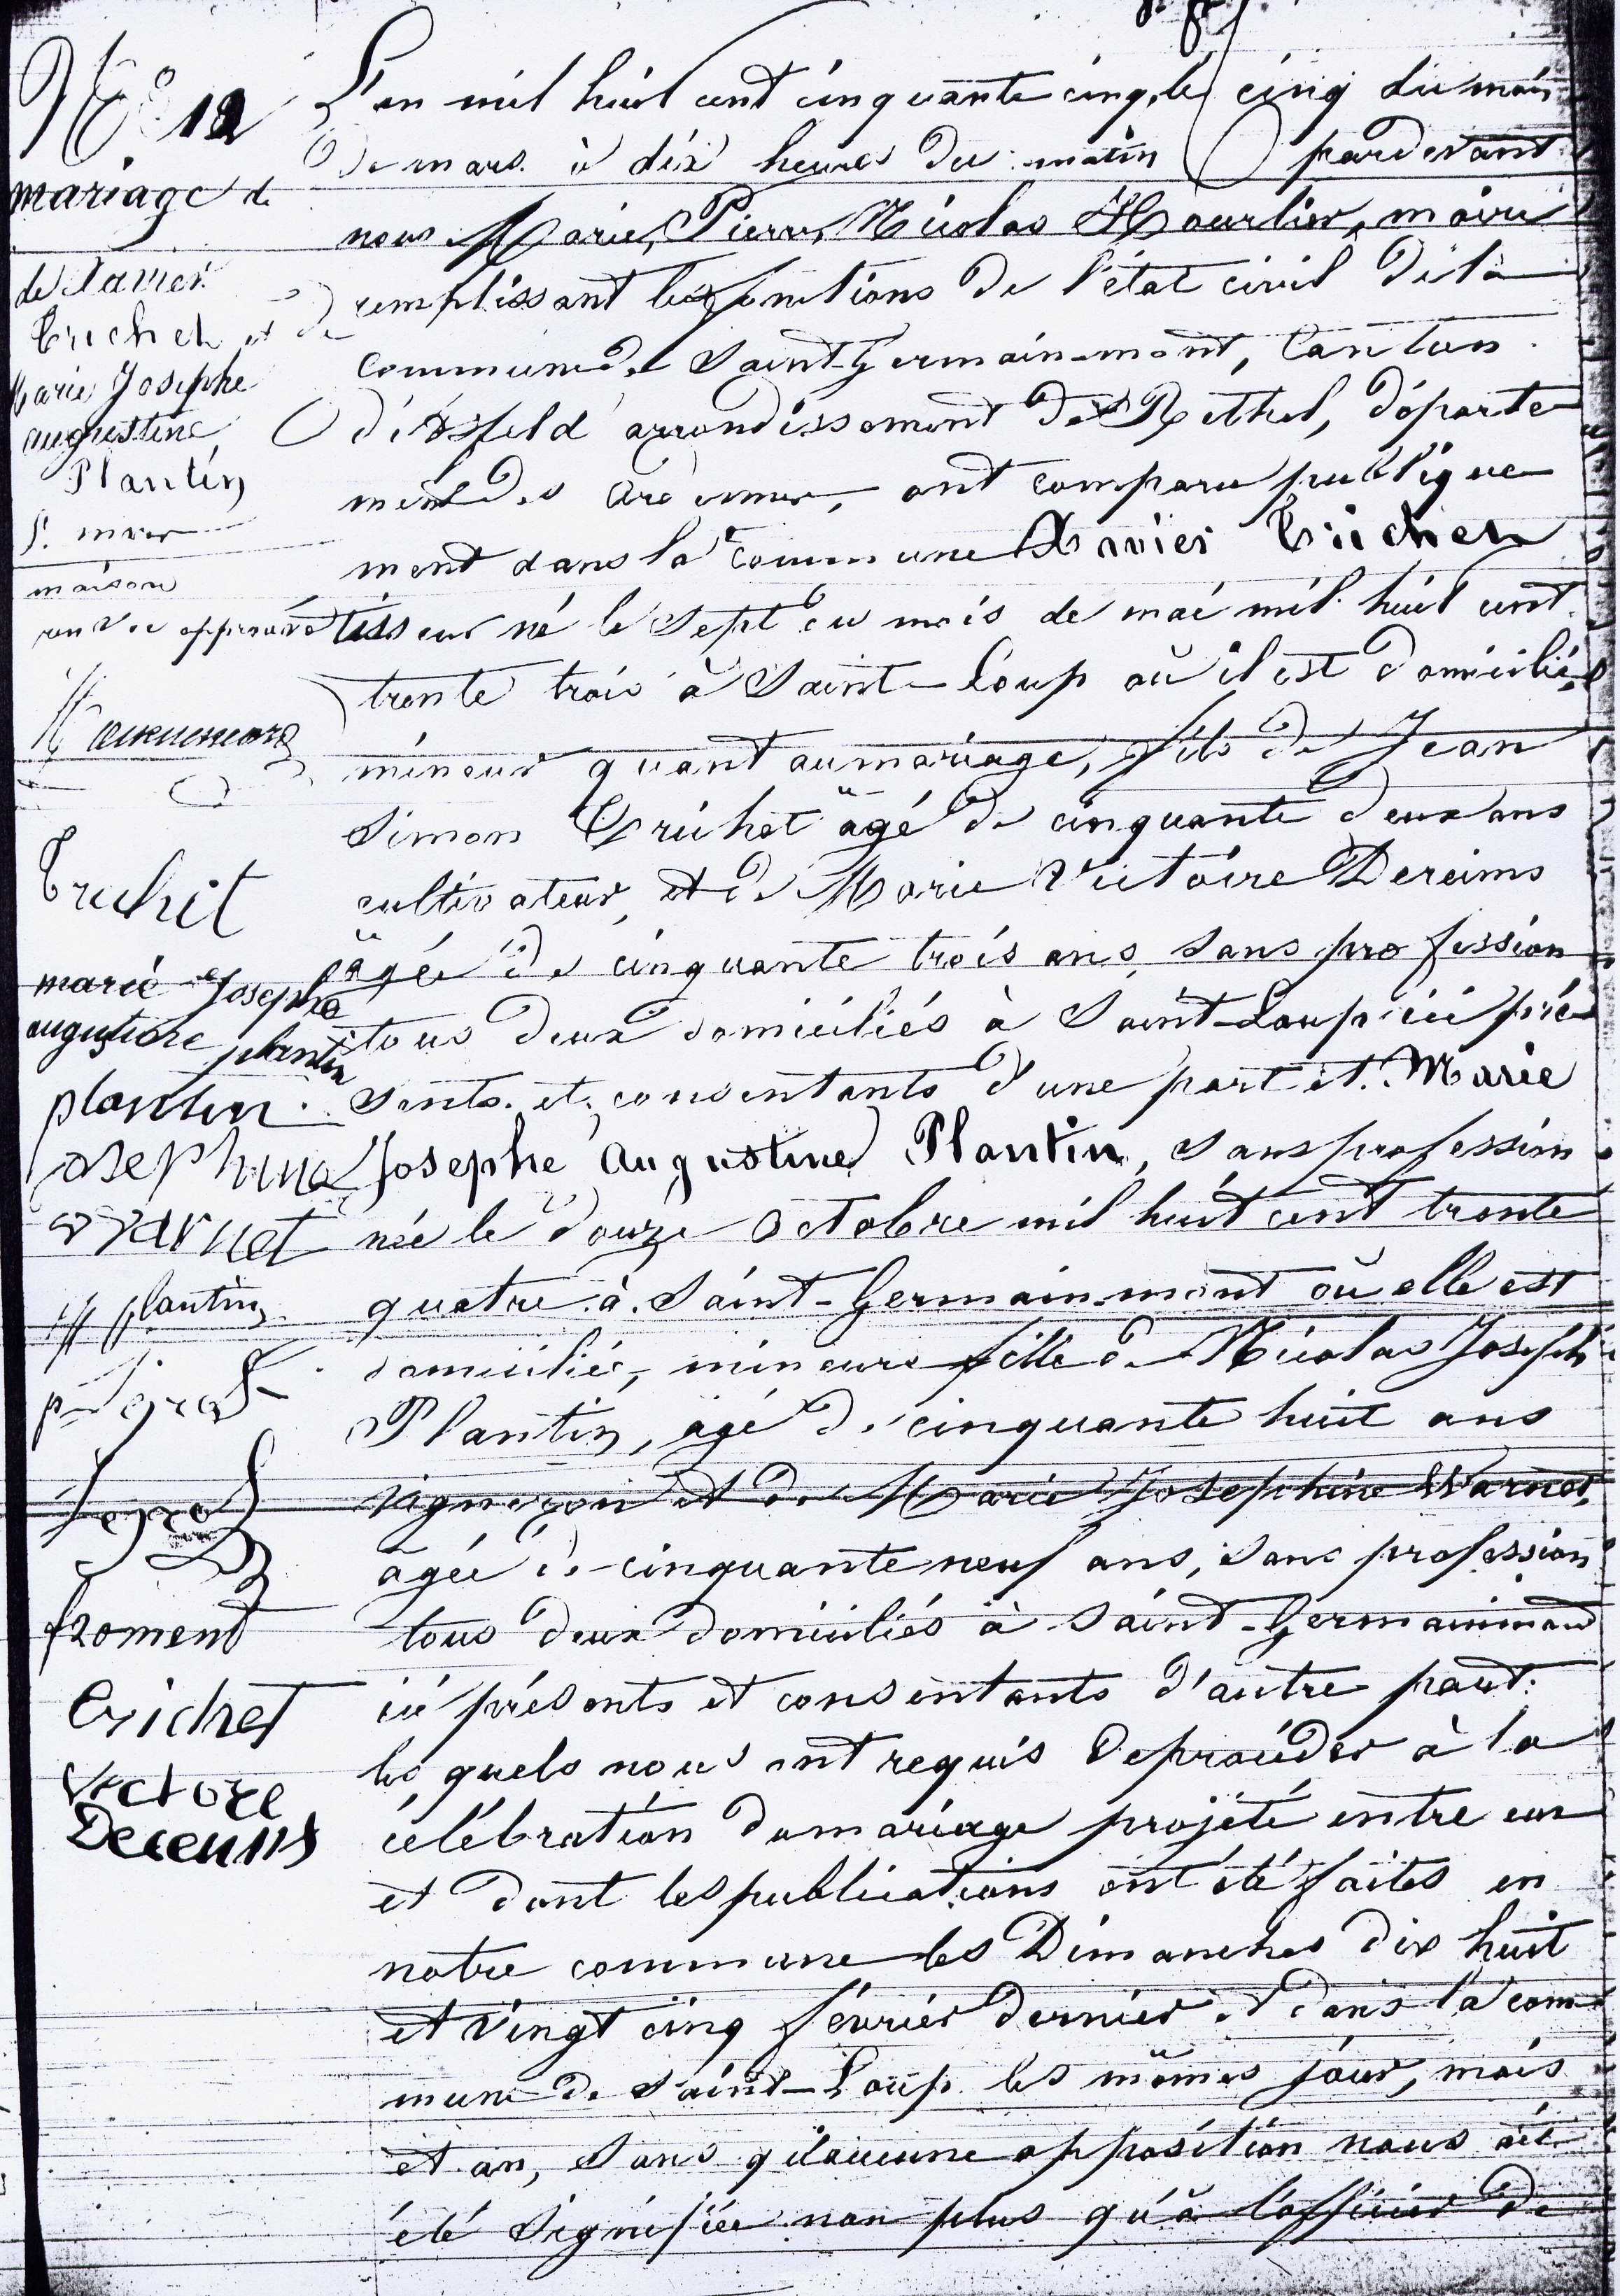 N° 12
mariage de
de Xavier
Trichet et de
Marie Josephe
augustine
Plantin
maison
approuvé
Trichet
marie Josephe
augustine plantin
plantin
Josephine
warnet
plantin
froment
Trichet
victoire
Dereims
L'an mil huit cent cinquante cinq, le cinq du mois
De mars à dix heures du matin pardevant
nous Marie, Pierre, Nicolas Hourlier, maire
remplissant les fonctions de l'état civil de la
commune de Saint-Germain-mont, Canton
d'asfeld arrondissement de Rethel, départe
ment des ardennes, ont comparu publique
ment dans la commune Xavier Trichet
tisseur né le sept du mois de mai mil huit cent
trente trois à Saint-Loup où il est domicilié,
mineur quant au mariage, fils de Jean
Simon Trichet âgé de cinquante deux ans
cultivateur, et de Marie Victoire Dereims
âgée de cinquante trois ans, sans profession
tous deux domiciliés à Saint-Loup ici pré
sents et consentants d'une part et Marie
Josephe Augustine Plantin, sans profession
née le douze octobre mil huit cent trente
quatre à Saint-Germain-mont où elle est
domiciliée, mineure fille de Nicolas Joseph
Plantin, âgé de cinquante huit ans
vigneron et de Marie Josephine Warnet,
âgée de cinquante neuf ans, sans profession
tous deux domiciliés à Saint-Germainmont
ici présents et consentants d'autre part:
les quels nous ont requis de procéder à la
célébration du mariage projeté entre eux
et dont les publications ont été faites en
notre commune les Dimanches dix huit
et vingt cinq février dernier et dans la com
mune de Saint-Loup les mêmes jour, mois
et an, sans qu'aucune opposition nous ait
été signifiée non plus qu'à l'officier de